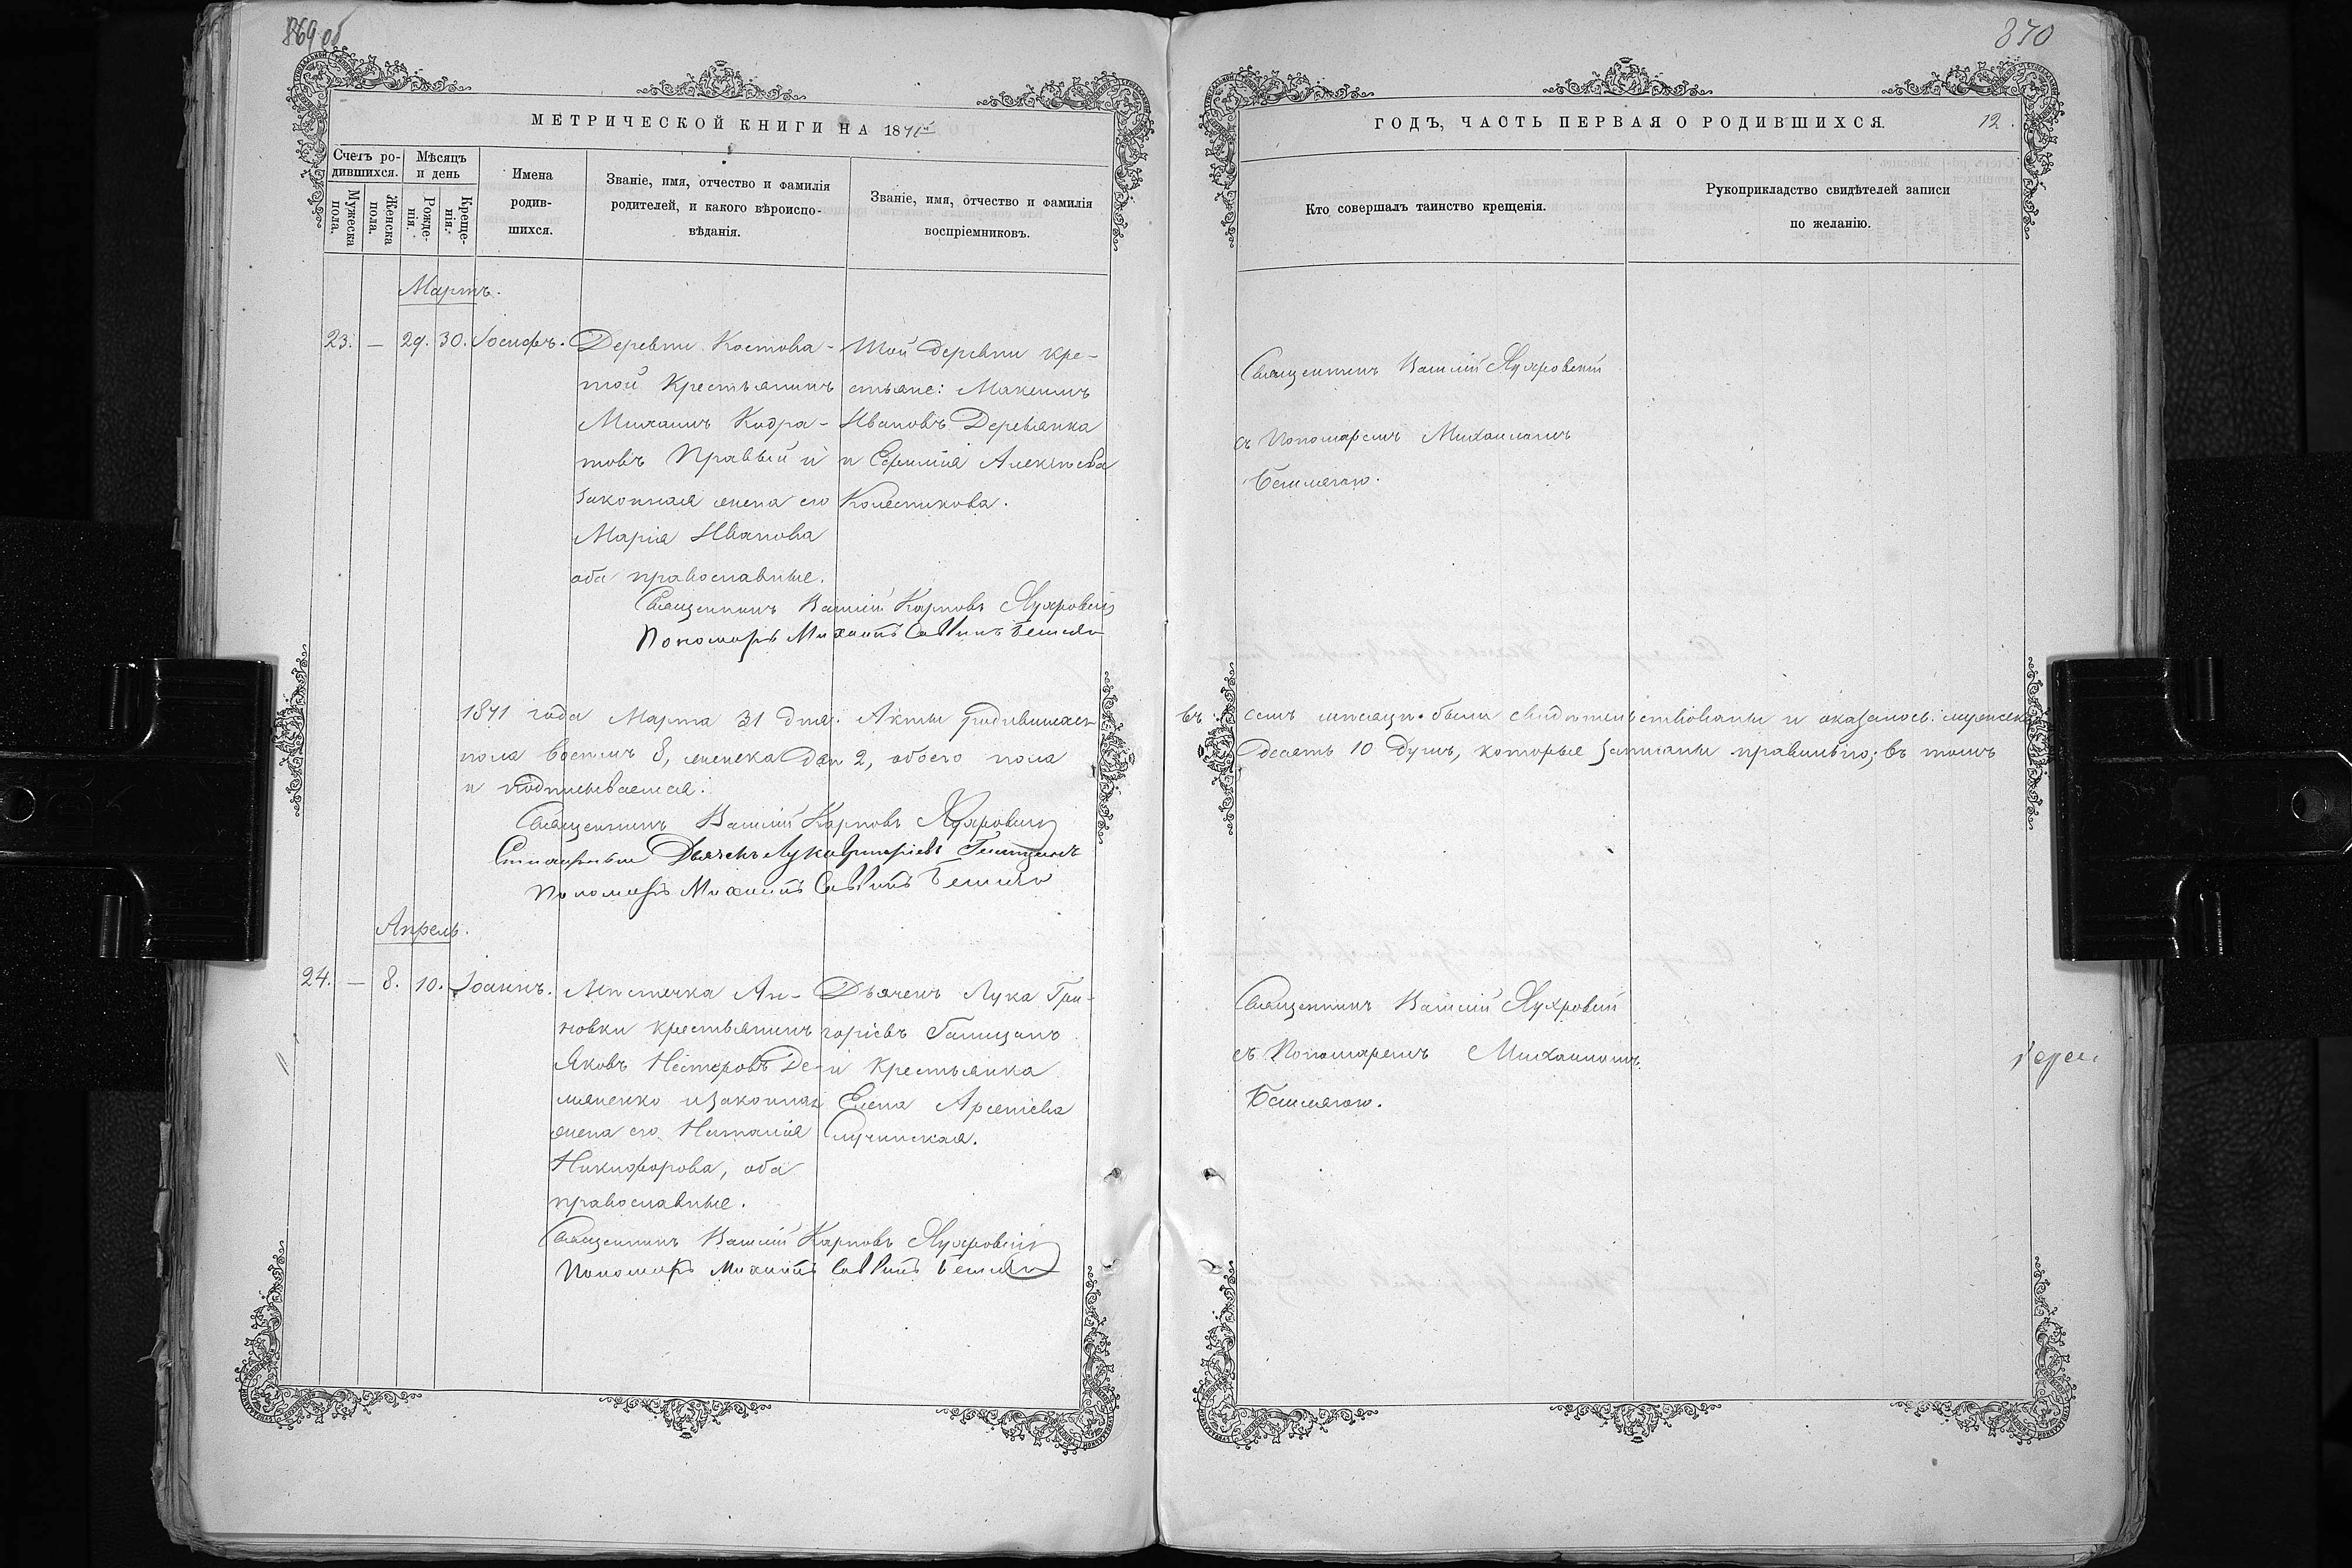 869 об
МЕТРИЧЕСКОЙ КНИГИ НА 1871й
Счетъ ро-
дившихся.
Мужеска
пола.
Женска
пола.
Мѣсяцъ
и день
Рожде-
нія.
Креще-
нія.
Имена
родив-
шихся.
Званіе, имя, отчество и фамилія
родителей, и какого вѣроиспо-
вѣданія.
Званіе, имя, отчество и фамилія
воспріемниковъ.
Мартъ.
23. — 29. 30. Іосифъ.
Деревни Костова-
той Крестьянинъ
Михаилъ Кодра-
товъ Правый и
законная жена его
Марія Иванова
оба православные.
Той деревни кре-
стьяне: Максимъ
Ивановъ Деревянка
и Евфимія Алексѣева
Колесникова.
Священникъ Василій Карповъ
Пономарь Михаилъ Саввинъ
1871 года Марта 31 дня. Акты родившихся
пола восемь 8, женска два 2, обоего пола
и подписываемся.
Священникъ Василій Карповъ
Дьячекъ Лука Григоріевъ Галицанъ
Пономарь Михаилъ Саввинъ
Апрель.
24. — 8. 10. Іоаннъ.
Мѣстечка Ан-
новки крестьянинъ
Яковъ Несторовъ Де-
мяненко и законная
жена его Наталія
Никифорова, оба
православные.
Дьячекъ Лука Гри-
горіевъ Галицанъ
и Крестьянка
Елена Арсеніева
Случинская.
Священникъ Василій Карповъ
Пономарь Михаилъ Саввинъ
870
ГОДЪ, ЧАСТЬ ПЕРВАЯ О РОДИВШИХСЯ.
12.
Кто совершалъ таинство крещенія.
Рукоприкладство свидѣтелей записи
по желанію.
Священникъ Василій
съ Пономаремъ Михаиломъ
въ семъ мѣсяцѣ были свидѣтельствованы и оказалось: мужеска
десять 10 душъ, которые записаны правильно; въ томъ
Священникъ Василій
съ Пономаремъ Михаиломъ